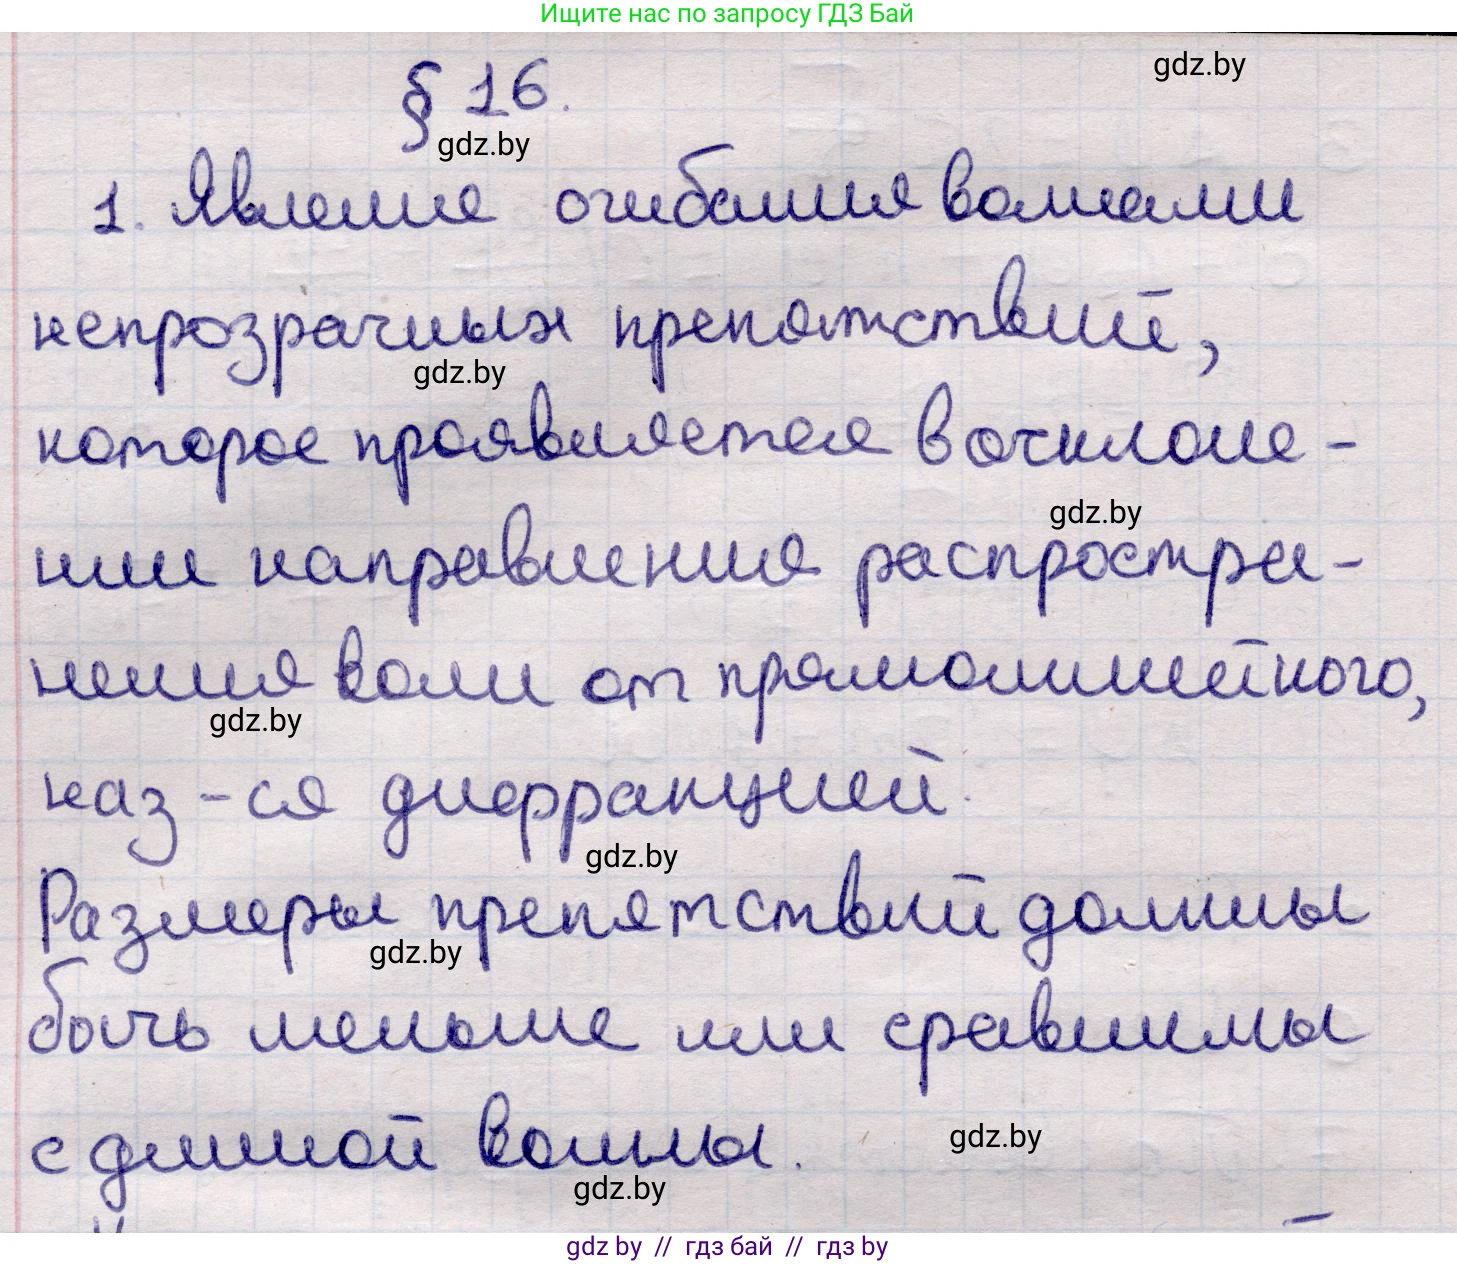 Ищите нас по запросу ГДЗ Бай
gdz.by
§ 16.
gdz.by
1. Явление огибания волнами
непрозрачных препятствий,
gdz.by
которое проявляется в отклоне-
gdz.by
нии направления распростра-
нения волн от прямолинейного,
gdz.by
наз-ся дифракцией.
gdz.by
Размеры препятствий должны
gdz.by
быть меньше или сравнимы
gdz.by
с длиной волны.
gdz.by
gdz by // гдз бай // гдз by